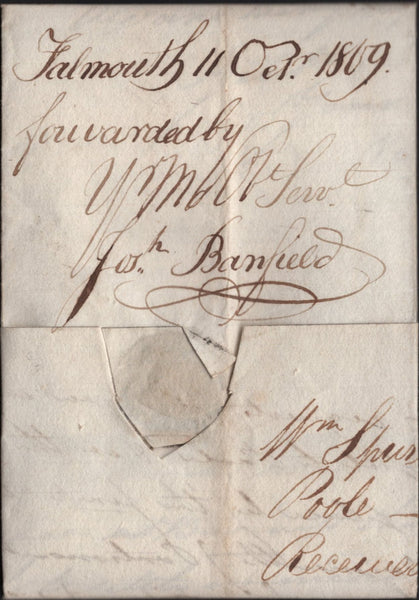 Falmouth 11 Octr. 1809.
forwarded by
Yr. M. Obt. Servt.
Josh. Banfield
Wm Spur
Poole —
Receive